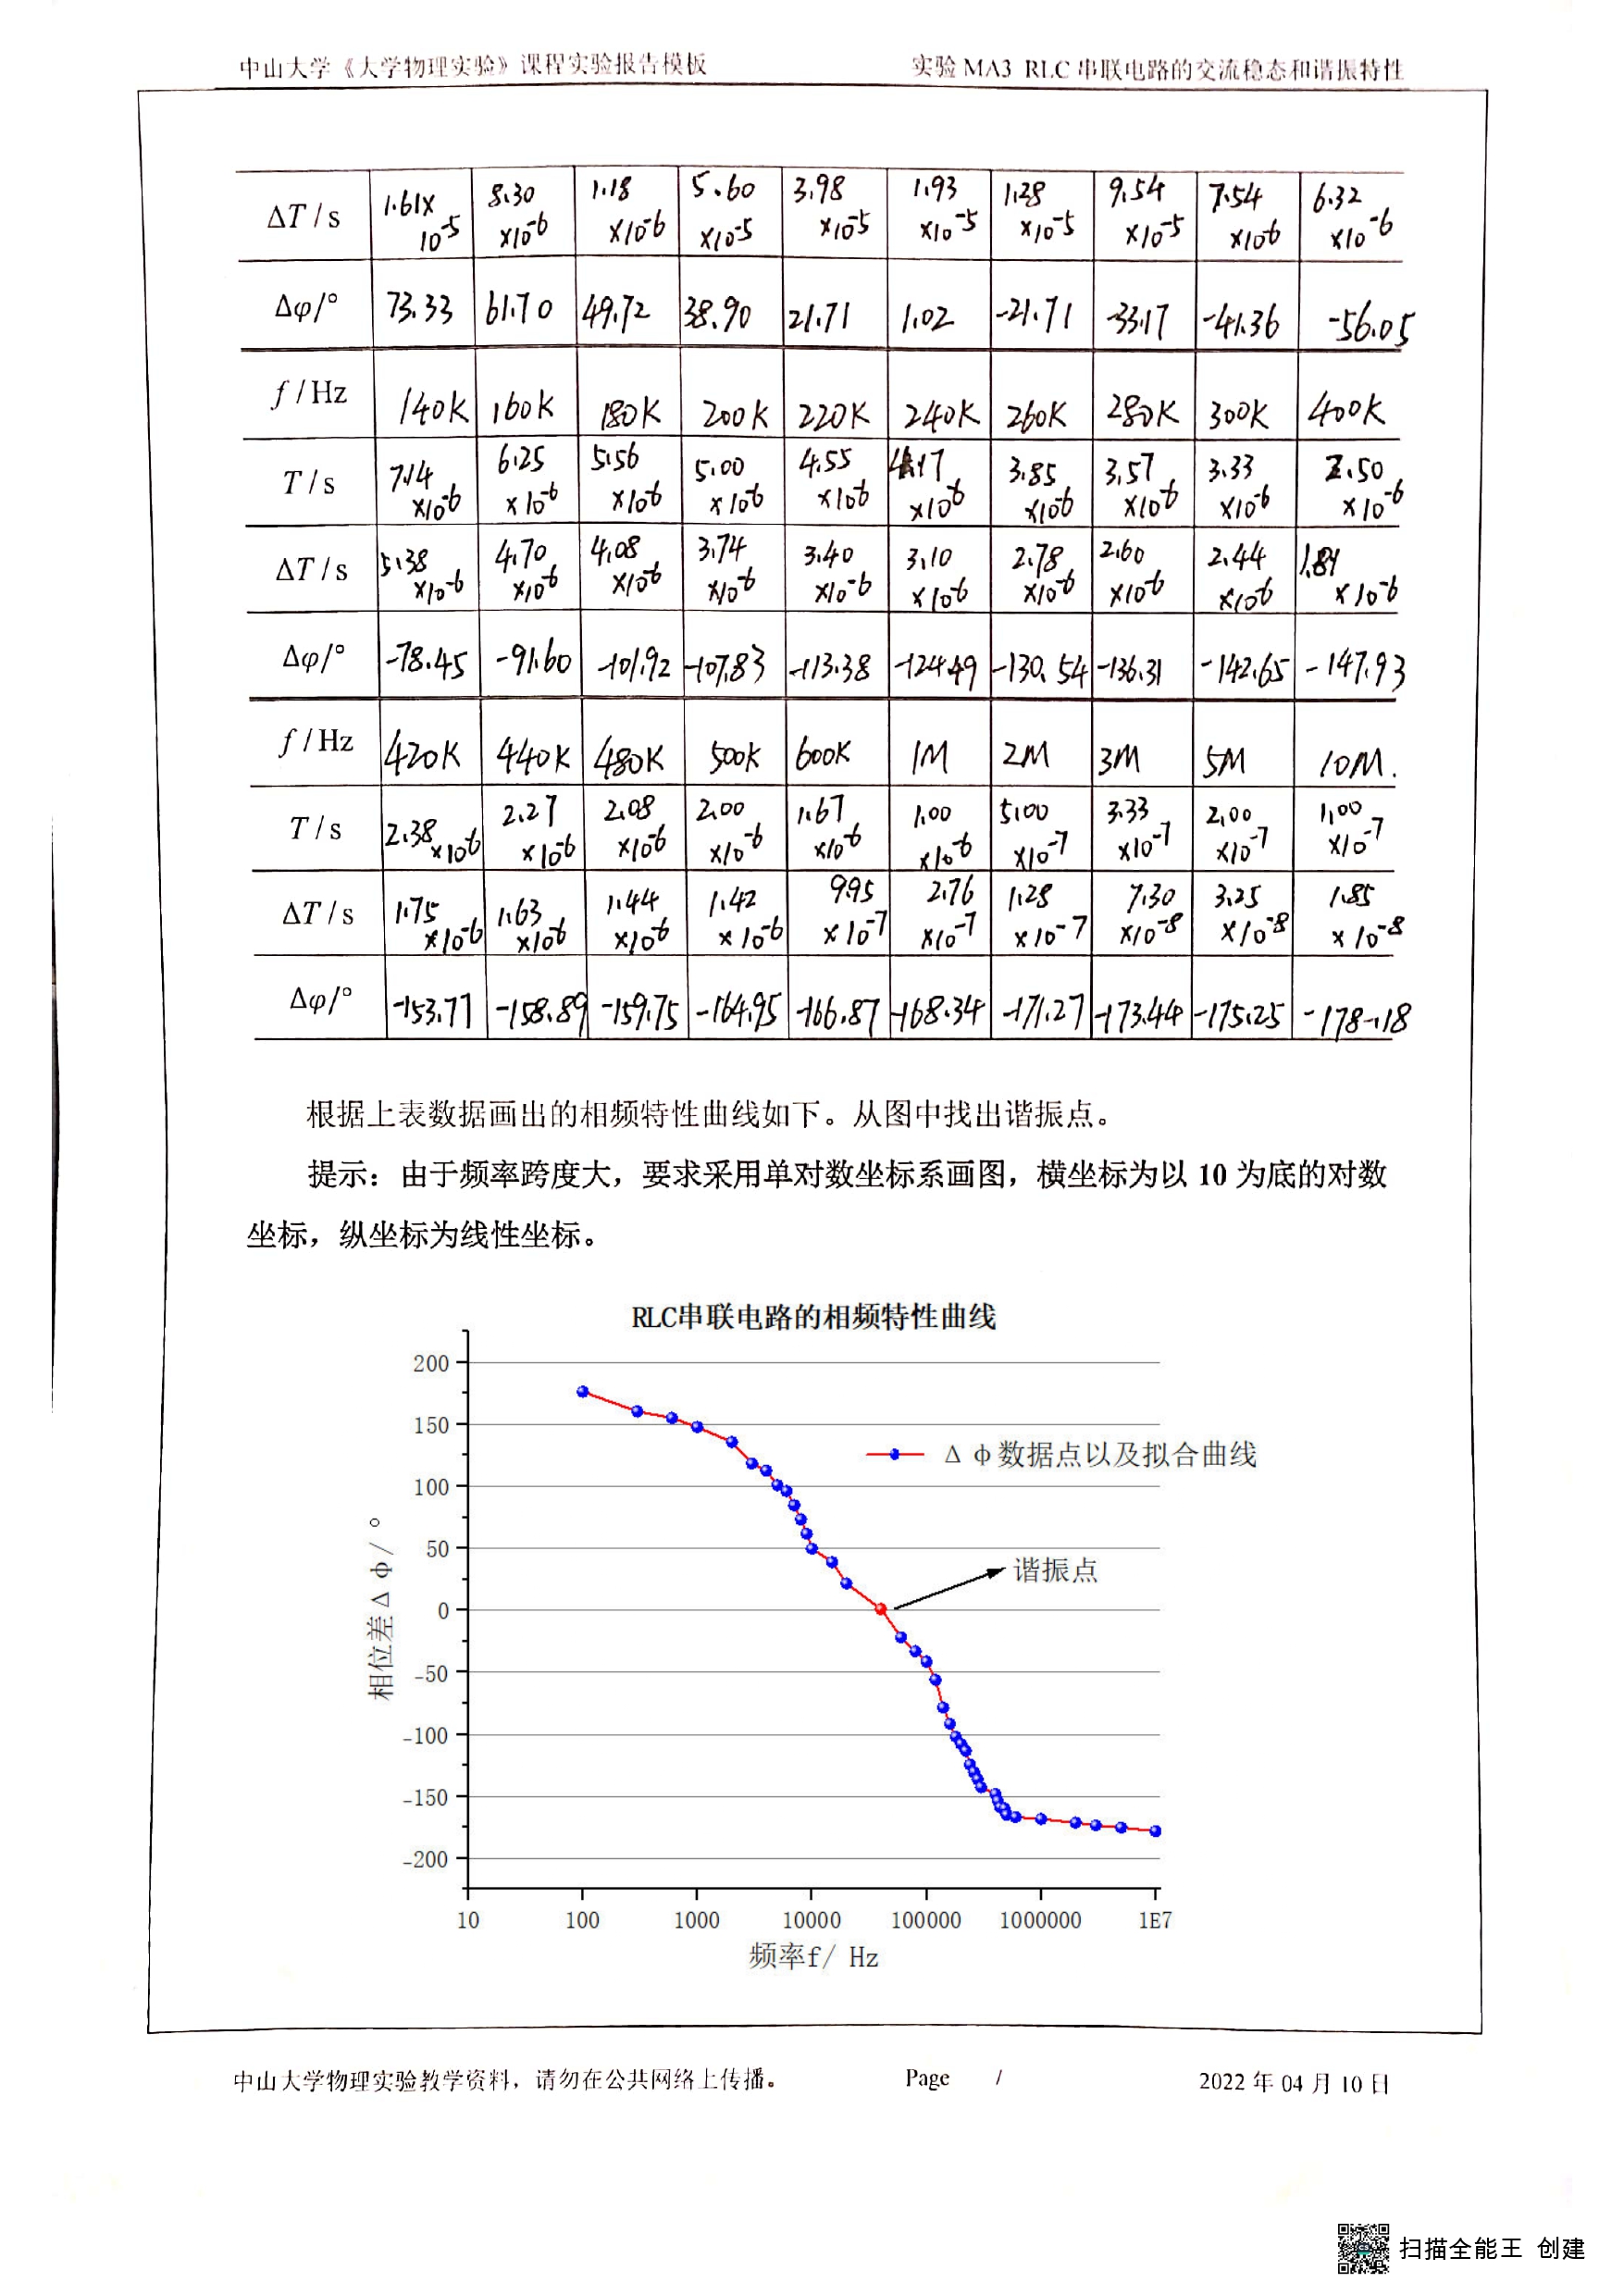 中山大学《大学物理实验》课程实验报告模板 实验 MA3 RLC 串联电路的交流稳态和谐振特性
ΔT / s 1.61×10⁻⁵ 8.30×10⁻⁶ 1.18×10⁻⁶ 5.60×10⁻⁵ 3.98×10⁻⁵ 1.93×10⁻⁵ 1.28×10⁻⁵ 9.54×10⁻⁵ 7.54×10⁻⁶ 6.32×10⁻⁶
Δφ/° 73.33 61.70 49.72 38.90 21.71 1.02 -21.71 -33.17 -41.36 -56.05
f / Hz 140K 160K 180K 200K 220K 240K 260K 280K 300K 400K
T / s 7.14×10⁻⁶ 6.25×10⁻⁶ 5.56×10⁻⁶ 5.00×10⁻⁶ 4.55×10⁻⁶ 4.17×10⁻⁶ 3.85×10⁻⁶ 3.57×10⁻⁶ 3.33×10⁻⁶ 2.50×10⁻⁶
ΔT / s 5.38×10⁻⁶ 4.70×10⁻⁶ 4.08×10⁻⁶ 3.74×10⁻⁶ 3.40×10⁻⁶ 3.10×10⁻⁶ 2.78×10⁻⁶ 2.60×10⁻⁶ 2.44×10⁻⁶ ×10⁻⁶
Δφ/° -78.45 -91.60 -101.92 -107.83 -113.38 -124.49 -130.54 -136.31 -142.65 -147.93
f / Hz 420K 440K 480K 500K 600K 1M 2M 3M 5M 10M.
T / s 2.38×10⁻⁶ 2.27×10⁻⁶ 2.08×10⁻⁶ 2.00×10⁻⁶ 1.67×10⁻⁶ 1.00×10⁻⁶ 5.00×10⁻⁷ 3.33×10⁻⁷ 2.00×10⁻⁷ 1.00×10⁻⁷
ΔT / s 1.75×10⁻⁶ 1.63×10⁻⁶ 1.44×10⁻⁶ 1.42×10⁻⁶ 9.95×10⁻⁷ 2.76×10⁻⁷ 1.28×10⁻⁷ 7.30×10⁻⁸ 3.25×10⁻⁸ 1.85×10⁻⁸
Δφ/° -153.77 -158.89 -159.75 -164.95 -166.87 -168.34 -171.27 -173.44 -175.25 -178.18
根据上表数据画出的相频特性曲线如下。从图中找出谐振点。
提示：由于频率跨度大，要求采用单对数坐标系画图，横坐标为以 10 为底的对数
坐标，纵坐标为线性坐标。
RLC串联电路的相频特性曲线
200
150
Δ φ数据点以及拟合曲线
100
50
谐振点
0
-50
-100
-150
-200
相位差Δ φ/ °
10 100 1000 10000 100000 1000000 1E7
频率f/ Hz
中山大学物理实验教学资料，请勿在公共网络上传播。 Page / 2022 年 04 月 10 日
扫描全能王 创建